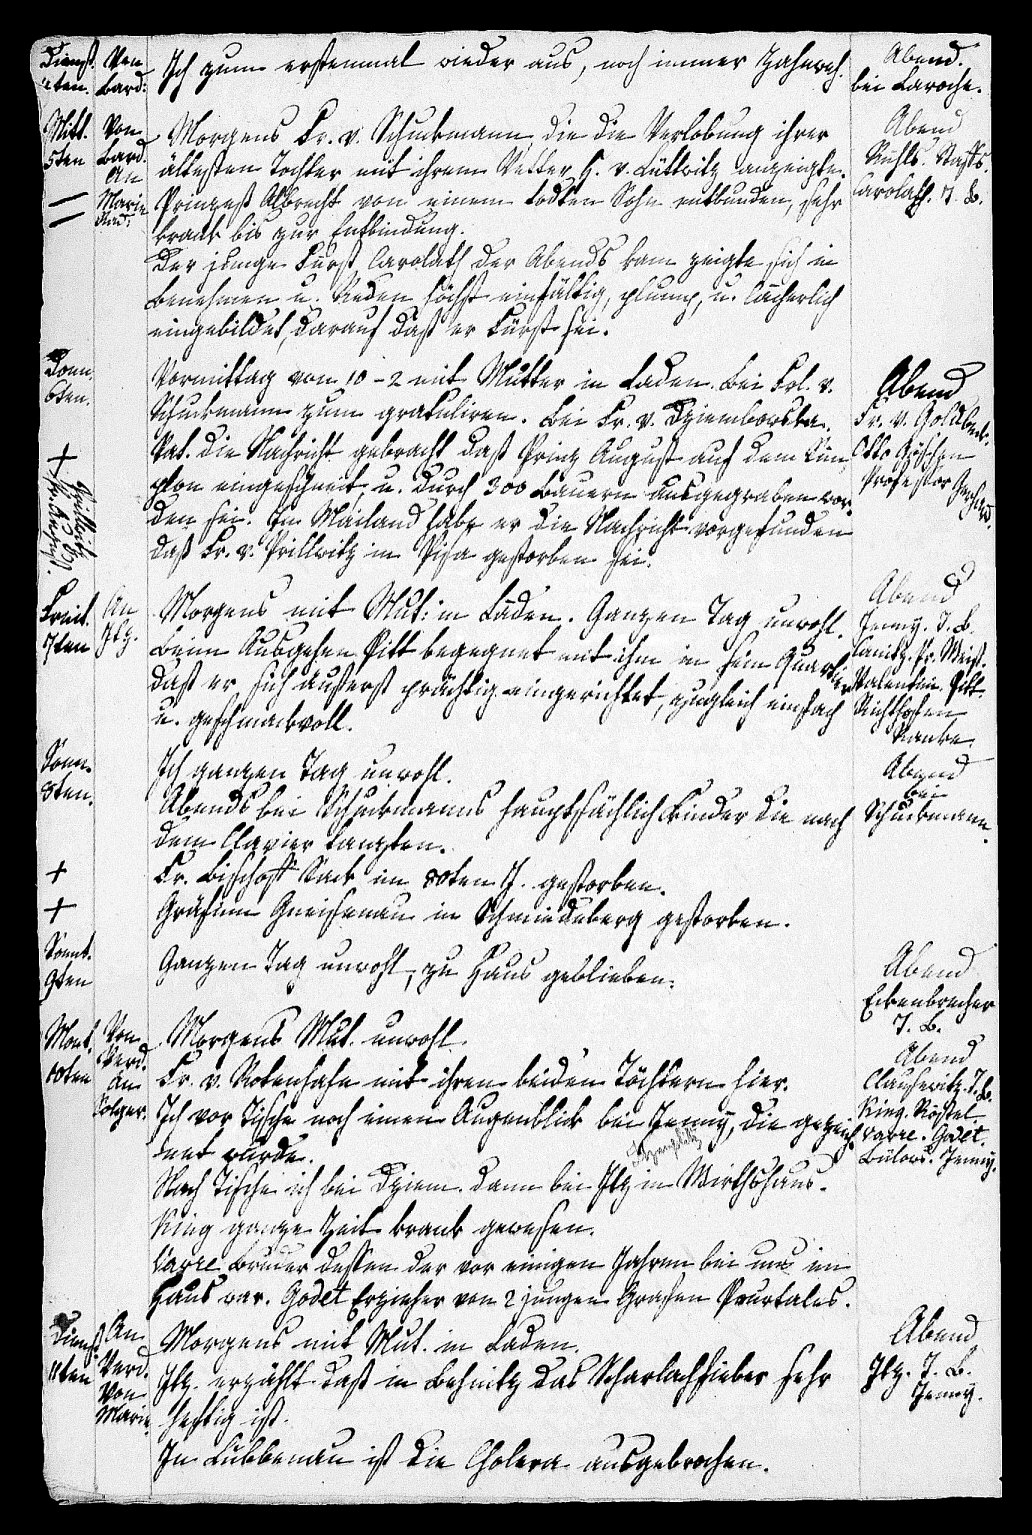 Dienst. 4ten. Von Bard: Ich zum erstenmal wieder aus, noch immer Zahnweh. Abend. bei Laroche.
Mitt. 5ten Von Bard. An Marie Ferd:
Morgens Fr. v. Schuckmann die die Verlobung ihrer
ältesten Tochter mit ihrem Vetter H. v. Lüttwitz anzeigte.
Prinzeß Albrecht von einem todten Sohn entbunden, sehr
krank bis zur Entbindung.
Der junge Fürst Carolath der Abends kam zeigte sich in
Benehmen u. Reden höchst einfältig, plump, u. lächerlich
eingebildet, darauf daß er Fürst sei.
Abend
Carolath. J. B.
Donn. 6ten.
Vormittag von 10-2 mit Mutter in Laden. Bei Fr. v.
Schuckmann zum gratuliren. Bei Fr. v. Dziembowska.
Vat. die Nachricht gebracht daß Prinz August auf dem Sim
plon eingeschneit, u. durch 300 Bauern ausgegraben wor-
den sei. In Mailand habe er die Nachricht vorgefunden
daß Fr. v. Prillwitz in Pisa gestorben sei.
+ Prillwitz
Abend
Fr. v. Goldbeck.
Otto Göschen
Professor Gerhard
Freit. 7ten An Itz.
Morgens mit Mut: in Läden. Ganzen Tag unwohl.
Beim Ausgehen Pitt begegnet mit ihm in sein Quartier
daß er sich äußerst prächtig eingerichtet, zugleich einfach
u. geschmackvoll.
Abend
Jenny. J. B.
Canitz. Fr. Meist.
Valentin. Pitt
Richthofen
Ranke.
Sonn. 8ten.
Ich ganzen Tag unwohl.
Abends bei Schuckmanns hauptsächlich Kinder die nach
dem Clavier tanzten.
Abend
bei
Schuckmann.
+ Fr. Bischoff Sack im 80ten J. gestorben.
+ Gräfinn Gneisenau in Schmiedeberg gestorben.
Sonnt. 9ten
Ganzen Tag unwohl, zu Haus geblieben.
Abend
Eckenbrecher
J. B.
Mont. 10ten Von Ferd. An Solger.
Morgens Mut. unwohl.
Fr. v. Rotenhahn mit ihren beiden Töchtern hier.
Ich vor Tische noch einen Augenblick bei Jenny, die gezeich
net wurde.
Nach Tische ich bei Dziem. dann bei Itz im Wirthshaus.
King ganze Zeit krank gewesen.
Varre Bruder dessen der vor einigen Jahren bei uns im
Haus war. Godet Erzieher von 2 jungen Grafen Pourtales.
Abend
Clausewitz. J. B.
King. Röstel
Varre. Godet.
Bülows. Jenny.
Dienst 11ten An Ferd. Von Marie.
Morgens mit Mut. in Laden.
Itz. erzählt daß in Behnitz das Scharlachfieber sehr
heftig ist.
In Lübbenau ist die Cholera ausgebrochen.
Abend
Itz. J. B.
Jenny.